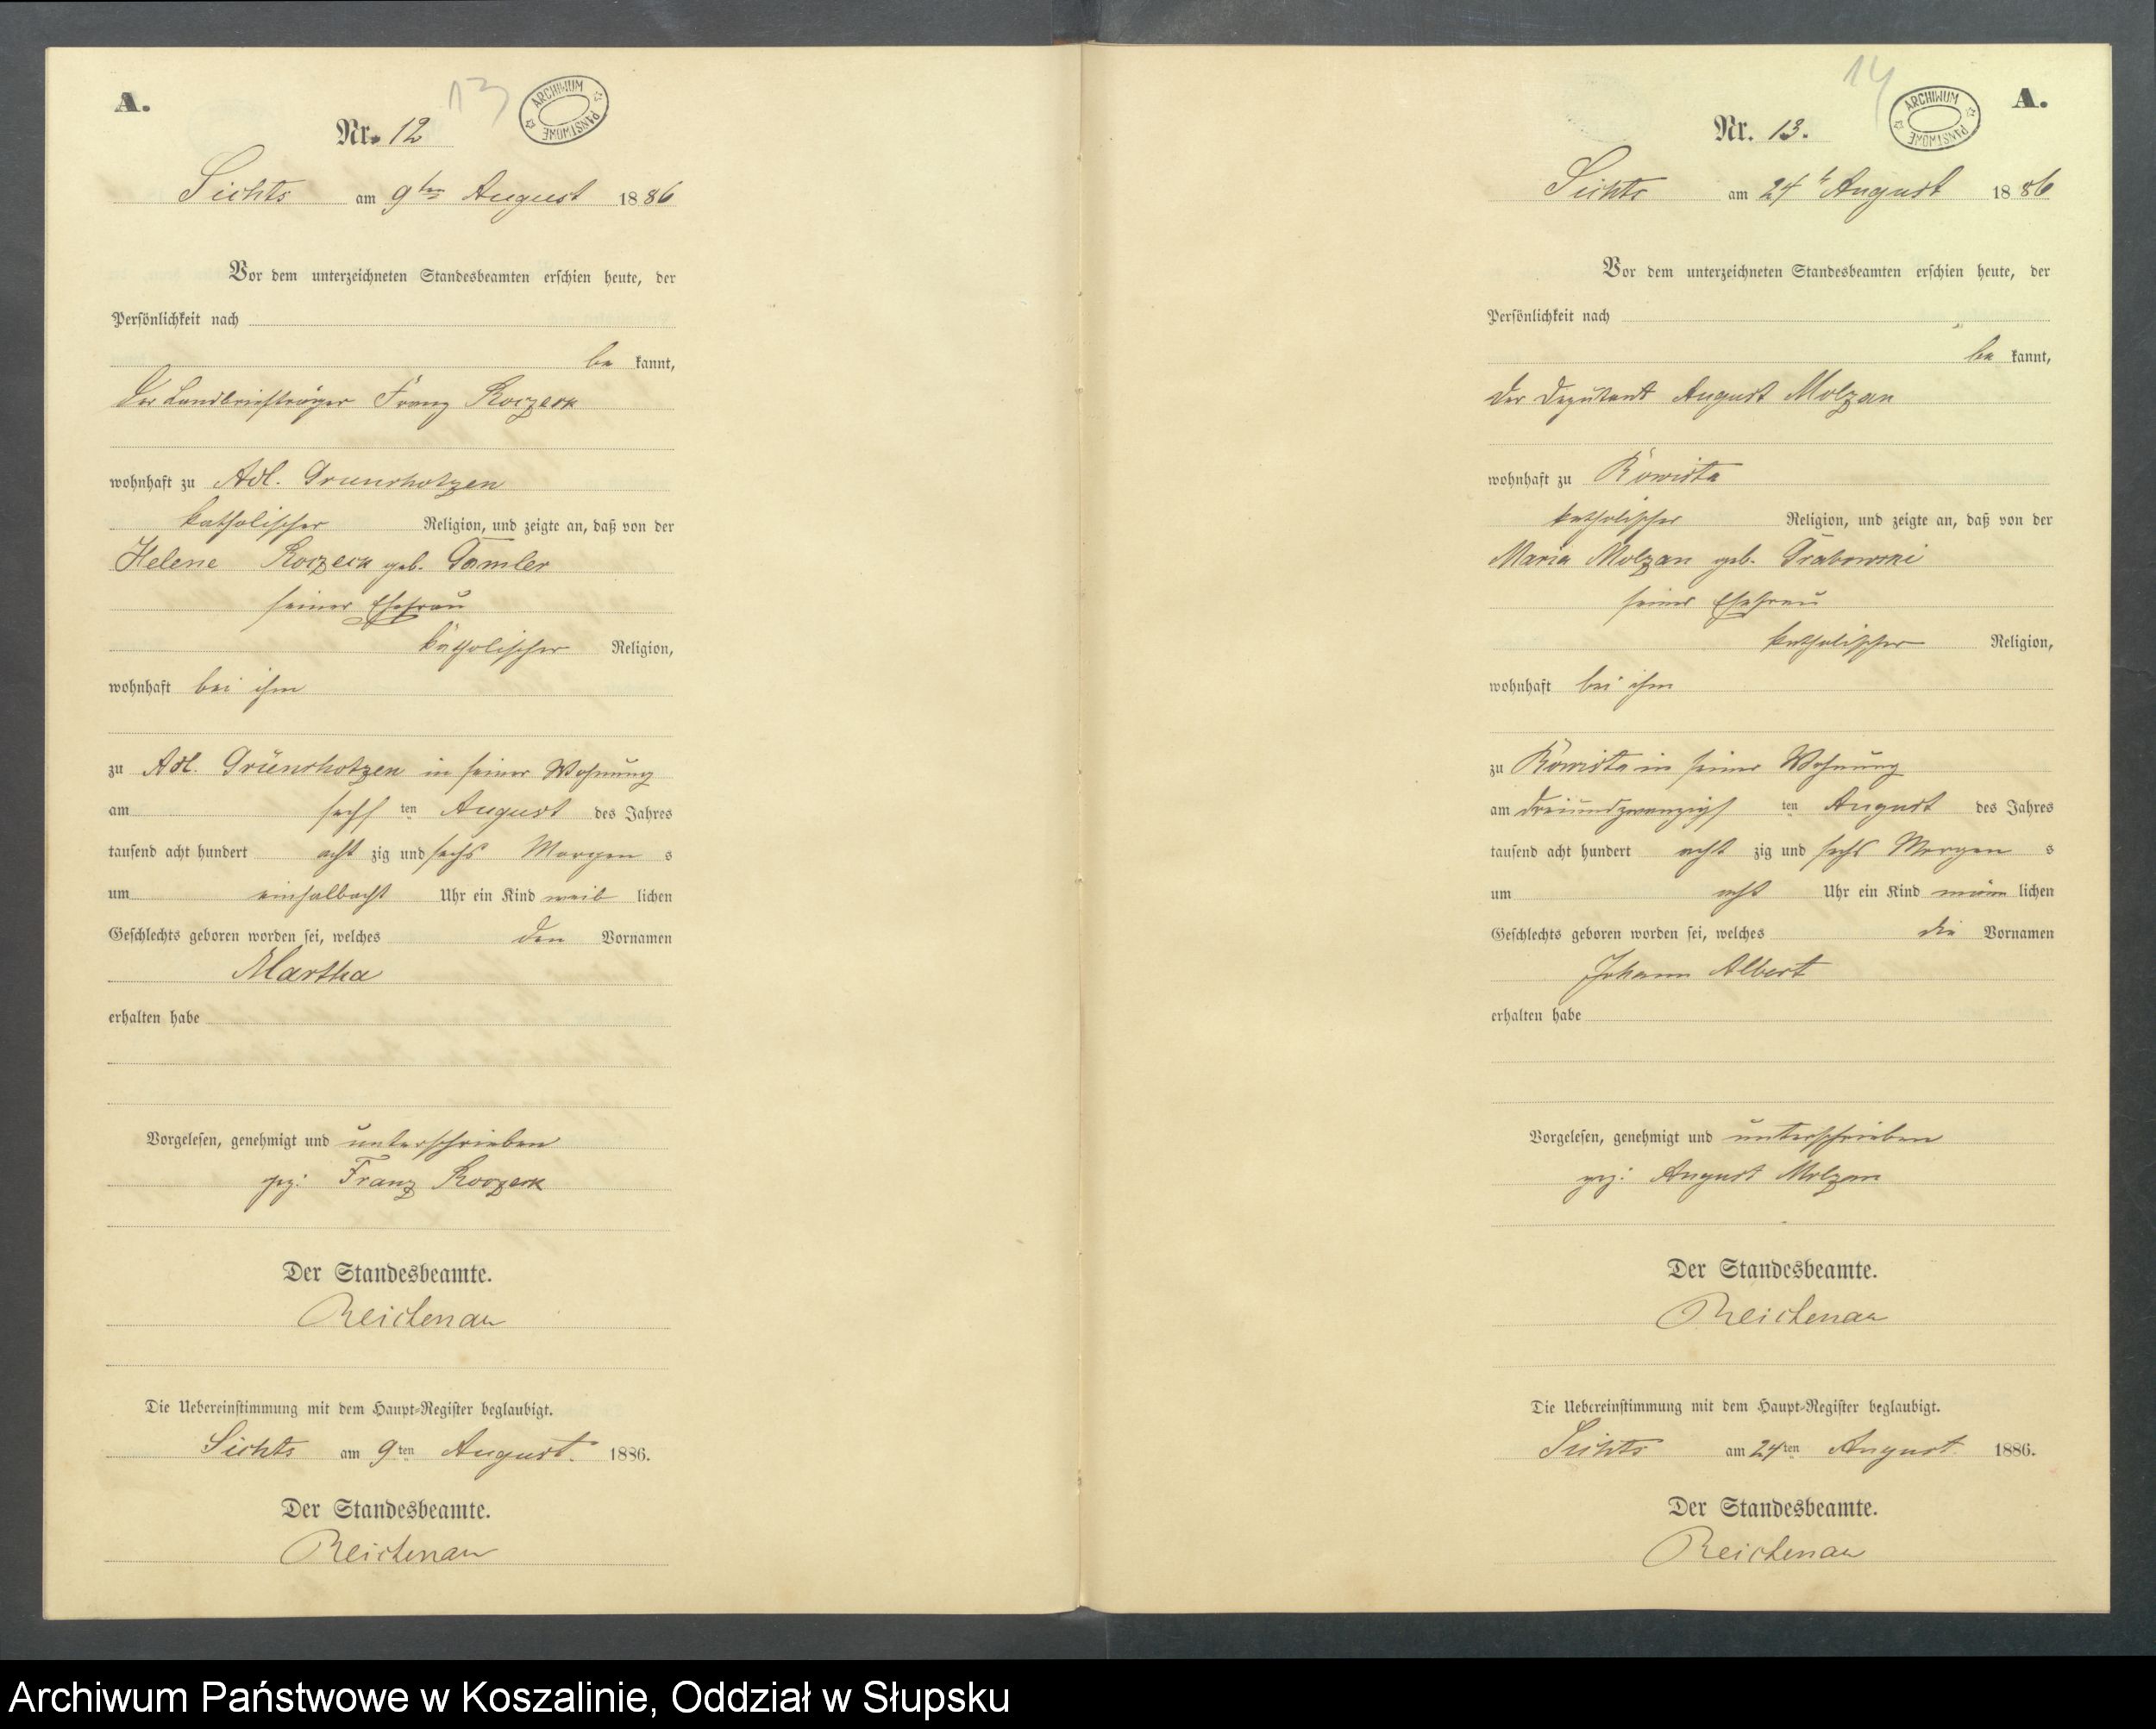 A.
13
ARCHIWUM PAŃSTWOWE
Nr. 12
Sichts am 9ten August 1886
Vor dem unterzeichneten Standesbeamten erschien heute, der
Persönlichkeit nach
be kannt,
der Landbriefträger Franz
wohnhaft zu Adl.
katholischer Religion, und zeigte an, daß von der
Helene geb. Gamler
seiner Ehefrau
katholischer Religion,
wohnhaft bei ihm
zu Adl. in seiner Wohnung
am sechs ten August des Jahres
tausend acht hundert acht zig und sechs Morgen s
um einhalbacht Uhr ein Kind weib lichen
Geschlechts geboren worden sei, welches den Vornamen
Martha
erhalten habe
Vorgelesen, genehmigt und unterschrieben
gez: Franz
Der Standesbeamte.
Reichenau
Die Uebereinstimmung mit dem Haupt-Register beglaubigt.
Sichts am 9ten August. 1886.
Der Standesbeamte.
Reichenau
14
ARCHIWUM PAŃSTWOWE
A.
Nr. 13.
Sichts am 24t August 1886
Vor dem unterzeichneten Standesbeamten erschien heute, der
Persönlichkeit nach
be kannt,
der Deputant August Molzan
wohnhaft zu
katholischer Religion, und zeigte an, daß von der
Maria Molzan geb. Grabowski
seiner Ehefrau
katholischer Religion,
wohnhaft bei ihm
zu in seiner Wohnung
am dreiundzwanzigs ten August des Jahres
tausend acht hundert acht zig und sechs Morgen s
um acht Uhr ein Kind männ lichen
Geschlechts geboren worden sei, welches die Vornamen
Johann Albert
erhalten habe
Vorgelesen, genehmigt und unterschrieben
gez: August Molzan
Der Standesbeamte.
Reichenau
Die Uebereinstimmung mit dem Haupt-Register beglaubigt.
Sichts am 24ten August 1886.
Der Standesbeamte.
Reichenau
Archiwum Państwowe w Koszalinie, Oddział w Słupsku